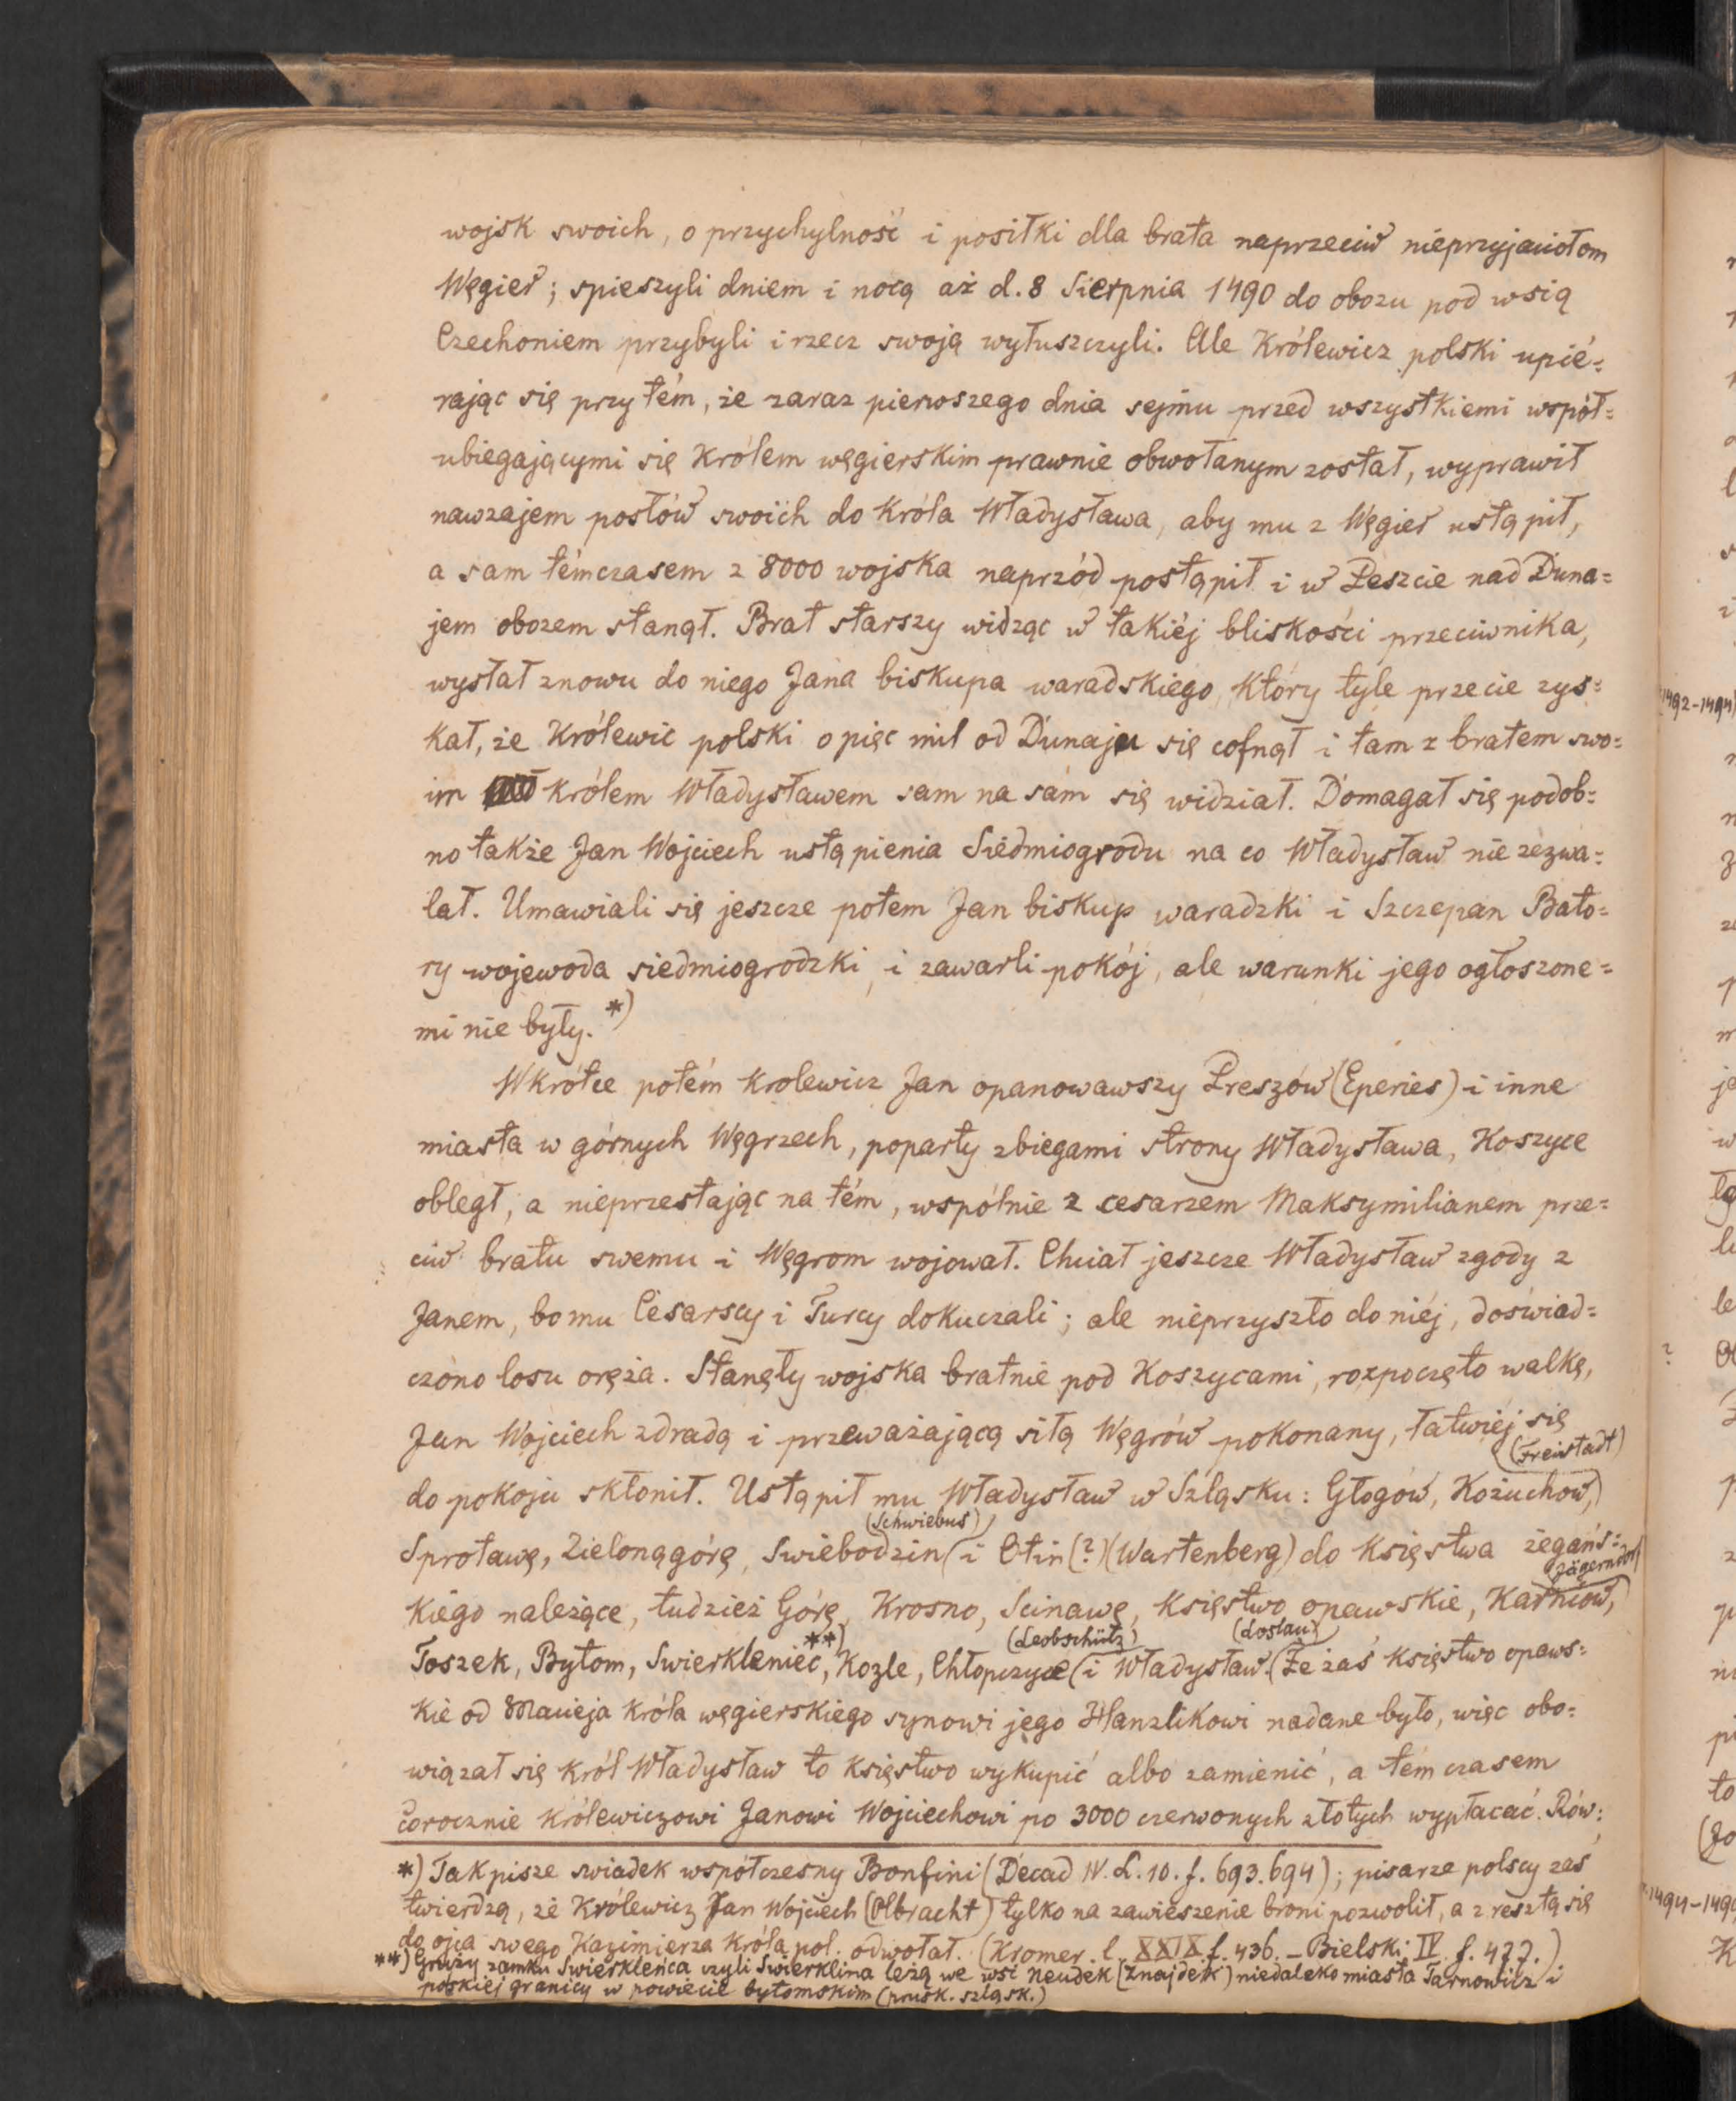 wojsk swoich, o przychylność i posiłki dla brata naprzeciw nieprzyjaciołom
Węgier; spieszyli dniem i nocą aż d. 8 Sierpnia 1490 do obozu pod wsią
Czechoniem przybyli i rzecz swoją wyłuszczyli. Ale Królewicz polski upié=
rając się przytém, że zaraz pierwszego dnia sejmu przed wszystkiemi współ=
ubiegającymi się Królem węgierskim prawnie obwołanym został, wyprawił
nawzajem posłów swoich do Króla Władysława, aby mu z Węgier ustąpił,
a sam témczasem z 8000 wojska naprzód postąpił i w Peszcie nad Duna=
jem obozem stanął. Brat starszy widząc w takiéj bliskości przeciwnika,
wysłał znowu do niego Jana biskupa waradskiego, Który tyle przecie zys=
kał, że Królewic polski o pięc mil od Dunaju się cofnął i tam z bratem swo=
im Królem Władysławem sam na sam się widział. Domagał się podob=
no także Jan Wojciech ustąpienia Siedmiogrodu na co Władysław nie zezwa=
lał. Umawiali się jeszcze potem Jan biskup waradzki i Szczepan Bato=
ry wojewoda siedmiogrodzki, i zawarli pokój, ale warunki jego ogłoszone=
mi nie były. *)
Wkrótce potém Krolewicz Jan opanowawszy Preszów (Eperies) i inne
miasta w górnych Węgrzech, poparty zbiegami strony Władysława, Koszyce
obległ, a nieprzestając na tém, wspólnie z cesarzem Maksymilianem prze=
ciw bratu swemu i Węgrom wojował. Chciał jeszcze Władysław zgody z
Janem, bo mu Cesarscy i Turcy dokuczali; ale nieprzyszło do niéj, doświad=
czono losu oręża. Stanęły wojska bratnie pod Koszycami, rozpoczęto walkę,
Jan Wojciech zdradą i przeważającą siłą Węgrów pokonany, łatwiéj się
(Freistadt)
do pokoju skłonił. Ustąpił mu Władysław w Szląsku: Głogów, Kożuchow,
(Schwiebus)
Sprotawę, Zielonągórę, Swiebodzin i Otin (?) (Wartenberg) do Księstwa żegańs=
(Jägerndorf)
Kiego należące, tudzież Górę, Krosno, Scinawę, Księstwo opawskie, Karniów,
**) (Leobschütz) (Loslau)
Toszek, Bytom, Swierkleniec, Kozle, Chłopczyce i Władysław. Że zaś Księstwo opaws=
Kie od Macieja Króla węgierskiego synowi jego Hanzlikowi nadane było, więc obo=
wiązał się Król Władysław to Księstwo wykupić albo zamienić, a tém czasem
corocznie Królewiczowi Janowi Wojciechowi po 3000 czerwonych złotych wypłacać. Rów=
*) Tak pisze swiadek współczesny Bonfini (Decad IV. L. 10. f. 693. 694); pisarze polscy zaś
twierdzą, że Królewicz Jan Wojciech (Olbracht) tylko na zawieszenie broni pozwolił, a z resztą się
do ojca swego Kazimierza Króla pol. odwołał. (Kromer l. XXIX f. 436. – Bielski IV f. 477.)
**) Gruzy zamku Swierkleńca czyli Swierklina leżą we wsi Neudek (Znajdek) niedaleko miasta Tarnowicz i
polskiej granicy w powiecie bytomskim (prusk. szląsk.)
1492-1494
1494-149